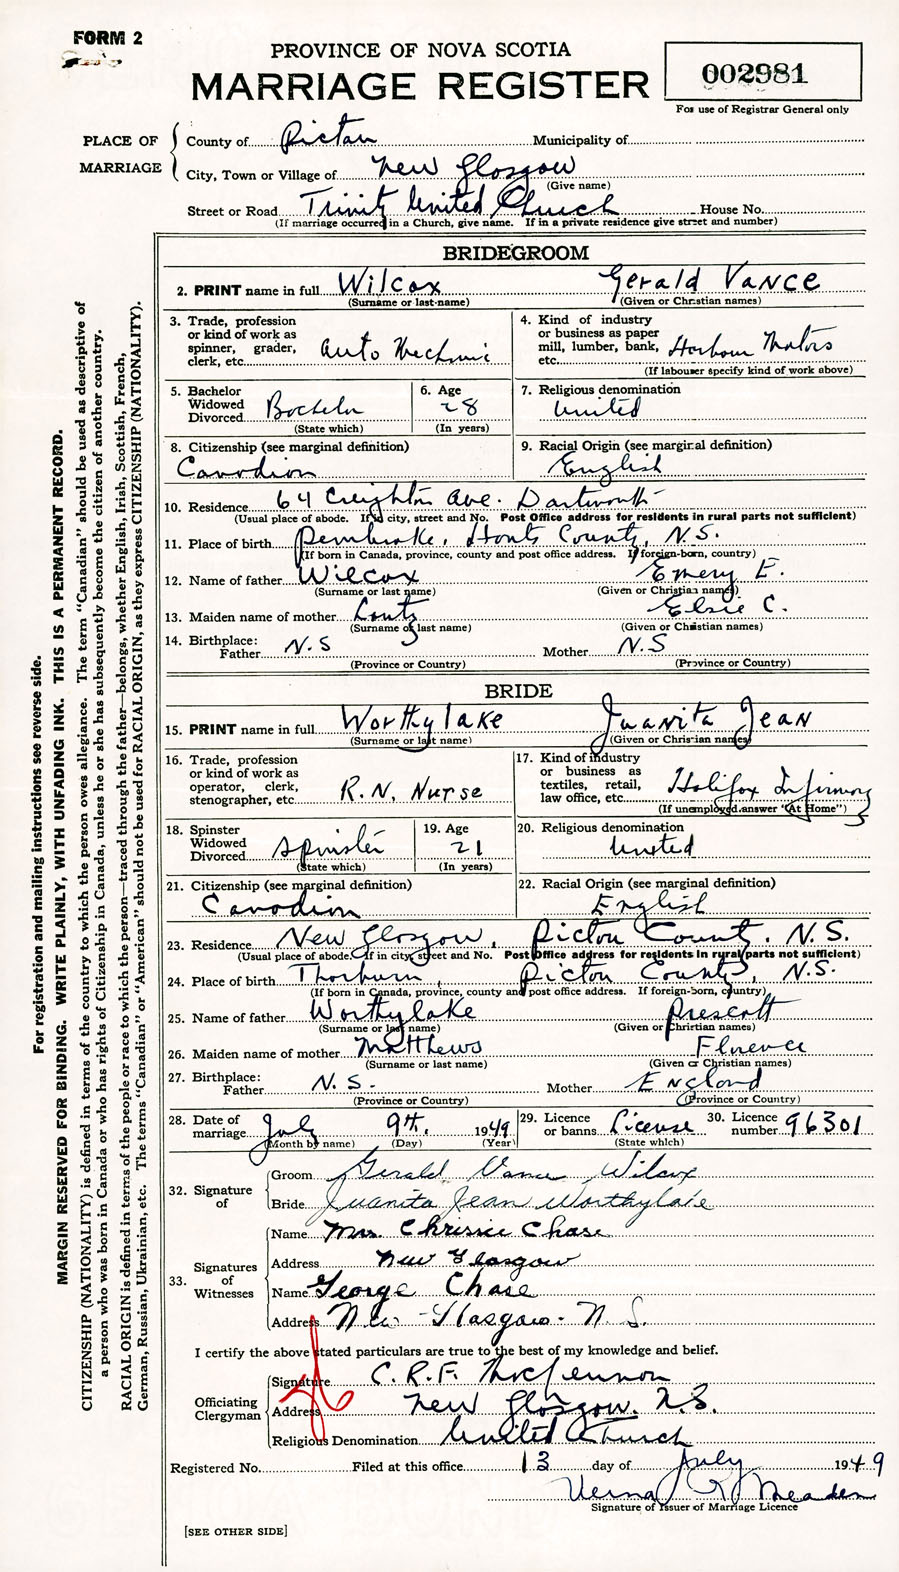 FORM 2
PROVINCE OF NOVA SCOTIA
MARRIAGE REGISTER
002981
For use of Registrar General only
PLACE OF MARRIAGE
County of Pictou Municipality of
City, Town or Village of New Glasgow
(Give name)
Street or Road Trinity United Church House No.
(If marriage occurred in a Church, give name. If in a private residence give street and number)
BRIDEGROOM
2. PRINT name in full Wilcox Gerald Vance
(Surname or last name) (Given or Christian names)
3. Trade, profession or kind of work as spinner, grader, clerk, etc. Auto Mechanic
4. Kind of industry or business as paper mill, lumber, bank, etc. Harbour Motors
(If labourer specify kind of work above)
5. Bachelor Widowed Divorced Bachelor
(State which)
6. Age 28
(In years)
7. Religious denomination
United
8. Citizenship (see marginal definition)
Canadian
9. Racial Origin (see marginal definition)
English
10. Residence 64 Creighton Ave. Dartmouth
(Usual place of abode. If in city, street and No. Post Office address for residents in rural parts not sufficient)
11. Place of birth Pembroke, Hants County, N.S.
(If born in Canada, province, county and post office address. If foreign-born, country)
12. Name of father Wilcox Emery E.
(Surname or last name) (Given or Christian names)
13. Maiden name of mother Lantz Elsie C.
(Surname or last name) (Given or Christian names)
14. Birthplace: Father N.S Mother N.S
(Province or Country) (Province or Country)
BRIDE
15. PRINT name in full Worthylake Juanita Jean
(Surname or last name) (Given or Christian names)
16. Trade, profession or kind of work as operator, clerk, stenographer, etc R.N. Nurse
17. Kind of industry or business as textiles, retail, law office, etc. Halifax Infirmary
(If unemployed answer "At Home")
18. Spinster Widowed Divorced Spinster
(State which)
19. Age 21
(In years)
20. Religious denomination
United
21. Citizenship (see marginal definition)
Canadian
22. Racial Origin (see marginal definition)
English
23. Residence New Glasgow, Pictou County, N.S.
(Usual place of abode. If in city, street and No. Post Office address for residents in rural parts not sufficient)
24. Place of birth Thorburn, Pictou County, N.S.
(If born in Canada, province, county and post office address. If foreign-born, country)
25. Name of father Worthylake Prescott
(Surname or last name) (Given or Christian names)
26. Maiden name of mother Matthews Florence
(Surname or last name) (Given or Christian names)
27. Birthplace: Father N.S. Mother England
(Province or Country) (Province or Country)
28. Date of marriage July 9th. 1949
(Month by name) (Day) (Year)
29. Licence or banns License
(State which)
30. Licence number 96301
32. Signature of
Groom Gerald Vance Wilcox
Bride Juanita Jean Worthylake
33. Signatures of Witnesses
Name Mrs. Chrissie Chase
Address New Glasgow
Name George Chase
Address New Glasgow. N.S.
I certify the above stated particulars are true to the best of my knowledge and belief.
Officiating Clergyman
Signature C.R.F.
Address New Glasgow. N.S.
Religious Denomination United Church
Registered No. Filed at this office 13 day of July 1949
Verna R. Meaden
Signature of Issuer of Marriage Licence
[SEE OTHER SIDE]
For registration and mailing instructions see reverse side.
MARGIN RESERVED FOR BINDING. WRITE PLAINLY, WITH UNFADING INK. THIS IS A PERMANENT RECORD.
CITIZENSHIP (NATIONALITY) is defined in terms of the country to which the person owes allegiance. The term "Canadian" should be used as descriptive of
a person who was born in Canada or who has rights of Citizenship in Canada, unless he or she has subsequently become the citizen of another country.
RACIAL ORIGIN is defined in terms of the people or race to which the person—traced through the father—belongs, whether English, Irish, Scottish, French,
German, Russian, Ukrainian, etc. The terms "Canadian" or "American" should not be used for RACIAL ORIGIN, as they express CITIZENSHIP (NATIONALITY).